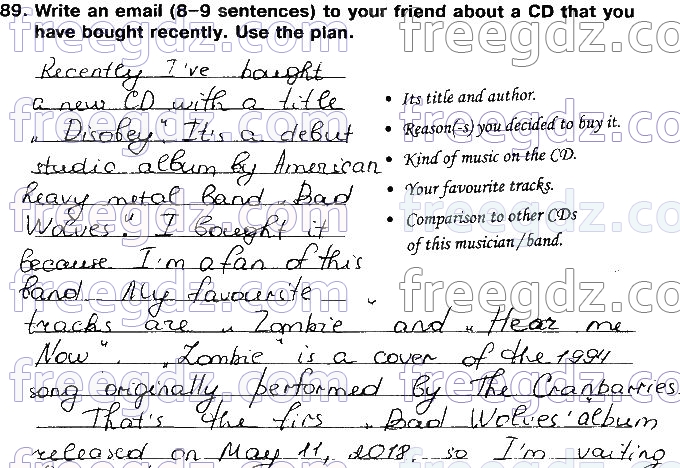 89. Write an email (8–9 sentences) to your friend about a CD that you
have bought recently. Use the plan.
Recently I've bought
a new CD with a title
„Disobey". It's a debut
studio album by American
heavy metal band „Bad
Wolves". I bought it
because I'm a fan of this
band. My favourite
tracks are „Zombie" and „Hear me
Now". „Zombie" is a cover of the 1994
song originally performed by The Cranbarries.
That's the firs „Bad Wolves' album
released on May 11, 2018. so I'm vaiting
• Its title and author.
• Reason(-s) you decided to buy it.
• Kind of music on the CD.
• Your favourite tracks.
• Comparison to other CDs
of this musician/band.
freegdz.com